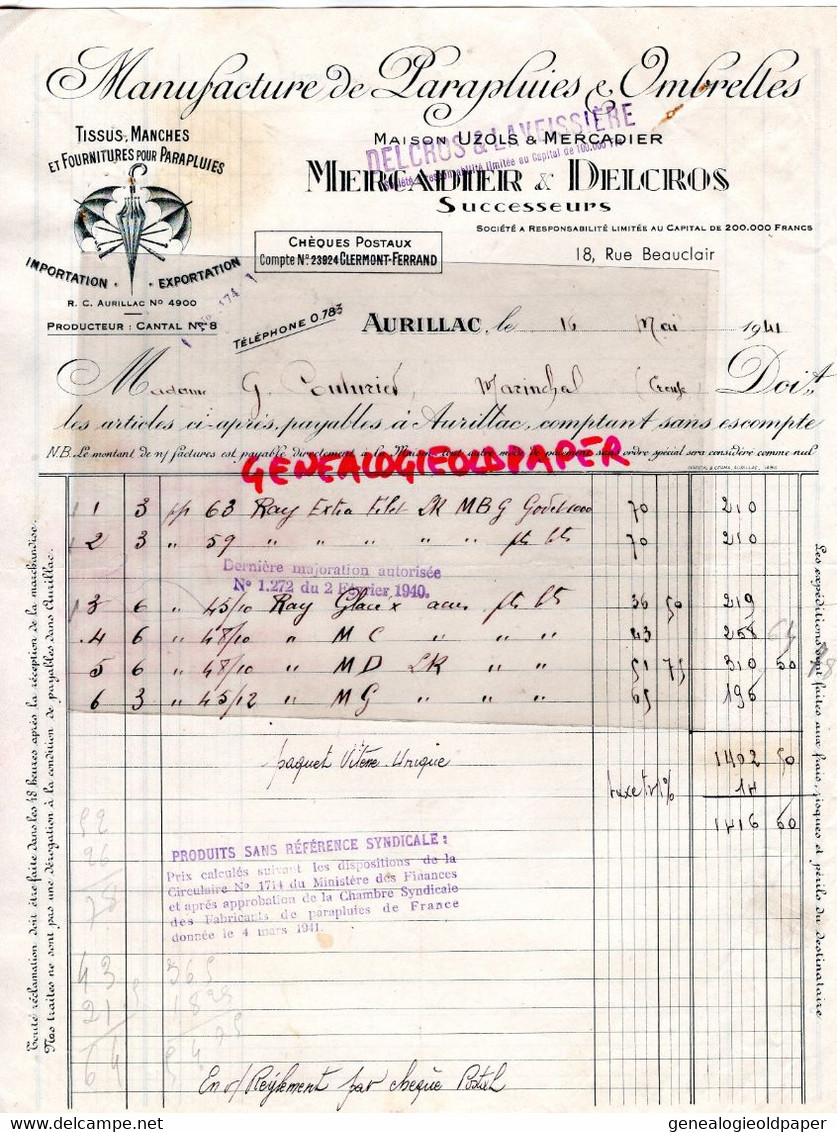 Manufacture de Parapluies & Ombrelles
TISSUS, MANCHES
ET FOURNITURES POUR PARAPLUIES
IMPORTATION - EXPORTATION
R. C. AURILLAC No 4900
PRODUCTEUR : CANTAL No 8
MAISON UZOLS & MERCADIER
DELCROS & LAVEISSIÈRE
Société à responsabilité limitée au Capital de 100.000 Frs
MERCADIER & DELCROS
Successeurs
SOCIÉTÉ A RESPONSABILITÉ LIMITÉE AU CAPITAL DE 200.000 FRANCS
CHÈQUES POSTAUX
Compte No 23924 CLERMONT-FERRAND
18, Rue Beauclair
No 174
TÉLÉPHONE 0.783
AURILLAC, le 16 Mai 1941
Madame G. Marinchal (Creuse) Doit
les articles ci-après, payables à Aurillac, comptant sans escompte
N.B. Le montant de n/ factures est payable directement à la Maison tout autre mode de paiement sans ordre spécial sera considéré comme nul
GENEALOGIEOLDPAPER
1 3 pp 63 Ray Extra Filet LR MBG Godet 1000 70 210
2 3 " 59 " " " " " " 70 210
Dernière majoration autorisée
No 1.272 du 2 Février 1940.
3 6 " 45/10 Ray 36 50 219
4 6 " 48/10 " MC " " " 43 258
5 6 " 48/10 " MD LR " " 51 75 310 50
6 3 " 45/12 " MG " " " 65 195
paquet 1402 50
taxe 1% 14
1416 50
52
26
78
PRODUITS SANS RÉFÉRENCE SYNDICALE :
Prix calculés suivant les dispositions de la
Circulaire No 1714 du Ministère des Finances
et après approbation de la Chambre Syndicale
des Fabricants de parapluies de France
donnée le 4 mars 1941.
43 365
21
64
En v/ Règlement par chèque Postal
Toute réclamation doit être faite dans les 48 heures après la réception de la marchandise.
Nos traites ne sont pas une dérogation à la condition de payables dans Aurillac.
Les expéditions sont faites aux frais, risques et périls du destinataire
genealogieoldpaper